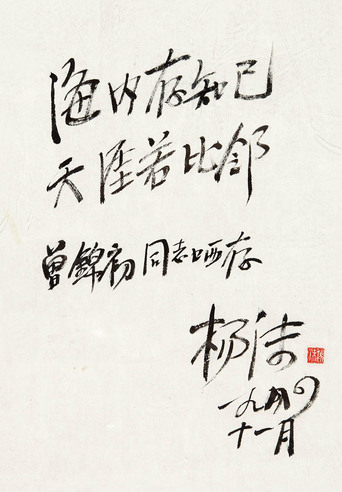 海内存知己
天涯若比邻
曾錦初同志哂存
杨沫
一九八〇
十一月